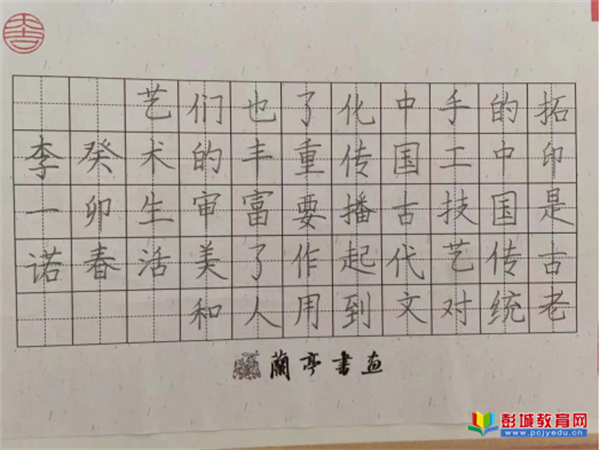 拓印是古老
的中国传统
手工技艺对
中国古代文
化传播起到
了重要作用
也丰富了人
们的审美和
艺术生活
癸卯春
李一诺
蘭亭書画
彭城教育网
www.pcjyedu.cn